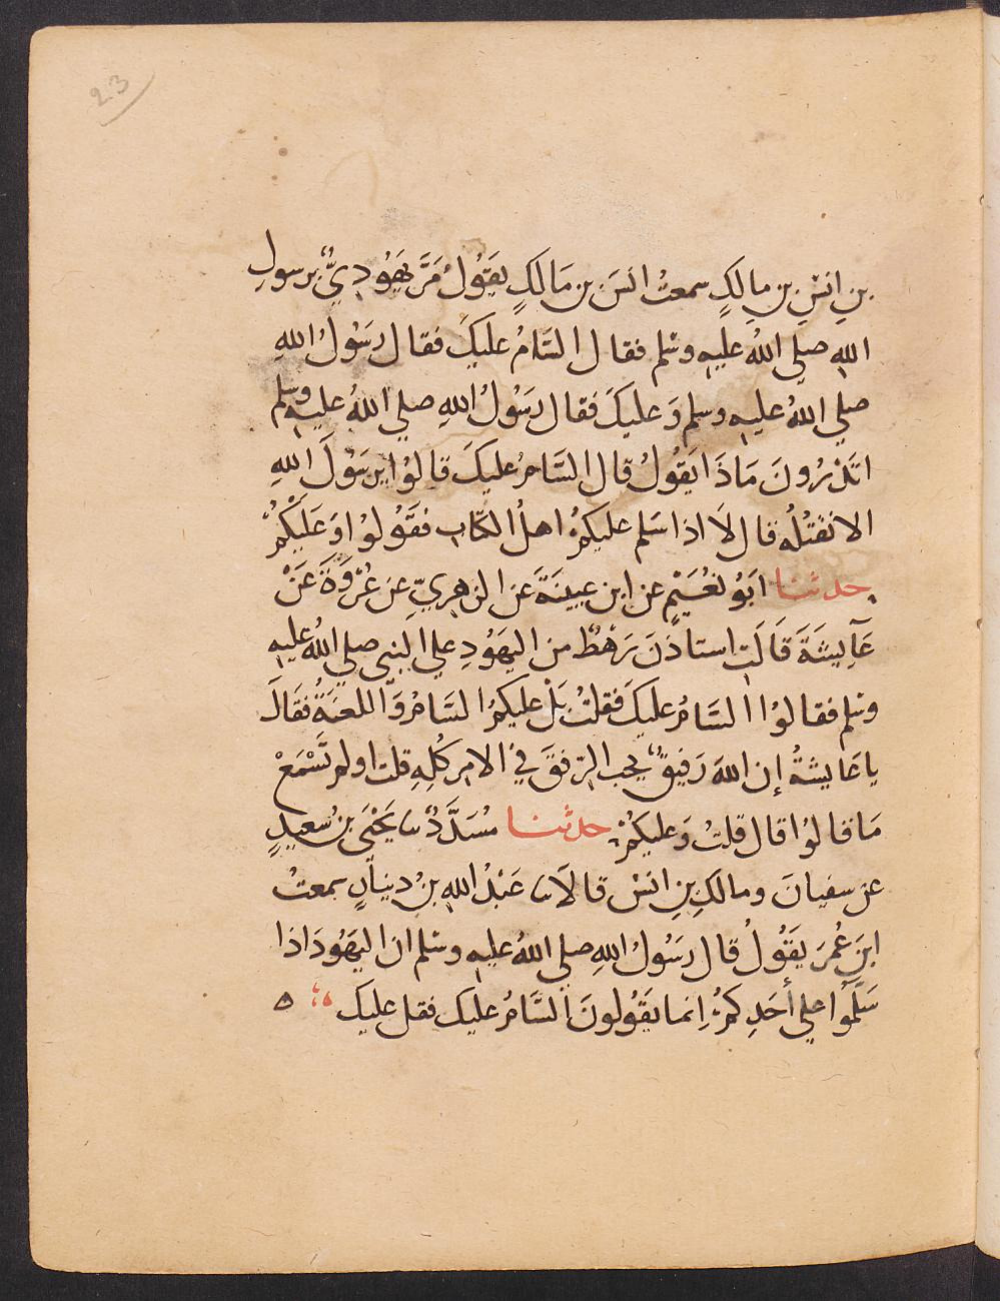 23
بنِ انسِ بنِ مالكٍ سمعتُ انسَ بن مَالكٍ يقَوُلُ مَرَّ يَهَوُديٌّ برسولِ
اللهِ صلي اللهُ عليهِ وسَلم فقال السَّامُ عليكَ فقال رسَوُلُ اللهِ
صلي اللهُ عليهِ وسلم وَعليكَ فقال رسَوُلُ اللهِ صلي اللهُ عليهِ وسلم
اتَدْرُونَ مَاذَا يقَوُلُ قال السَّامُ عليكَ قالوُا يرسَوُلَ اللهِ
الا نقَتُلُه قال لَا اذا سَلم عليكمُ اهلُ الكتابِ فقَوُلوُا وَعَلَيْكُمْ
حدثنا ابَوُ نعُيَمٍ عن ابن عيينَةَ عن الزهريِّ عن عُرْوَةَ عَنْ
عَايِشَةَ قَالَت استاذنَ رَهْطٌ من اليهَوُدِ علي النبي صلي اللهُ عليهِ
وسَلم فقالوُا السَّامُ عليكَ فقلتُ بَلْ عليكمُ السَّامُ وَاللعنَةُ فقَالَ
يا عَايشةُ إن اللهَ رَفيقٌ يحب الرِّفقَ فيْ الامرِ كُلِهِ قلت اولم تَسْمَعْ
مَا قالوُا قال قلتُ وَعليكمُ حدثنا مسُدَّدٌ نا يَحْيَى بنُ سعيدٍ
عن سفيانَ ومالكِ بنِ انسَ قالَا نا عَبْدُ اللهِ بنُ دينارٍ سمعتُ
ابنَ عُمرَ يقَوُلُ قال رسَوُلُ اللهِ صلي اللهُ عليهِ وسَلم ان اليهَوُدَ اذا
سَلَّموُا علي أحَدِكمُ إنما يقَوُلونَ السَّامُ عليك فقل عليك ه